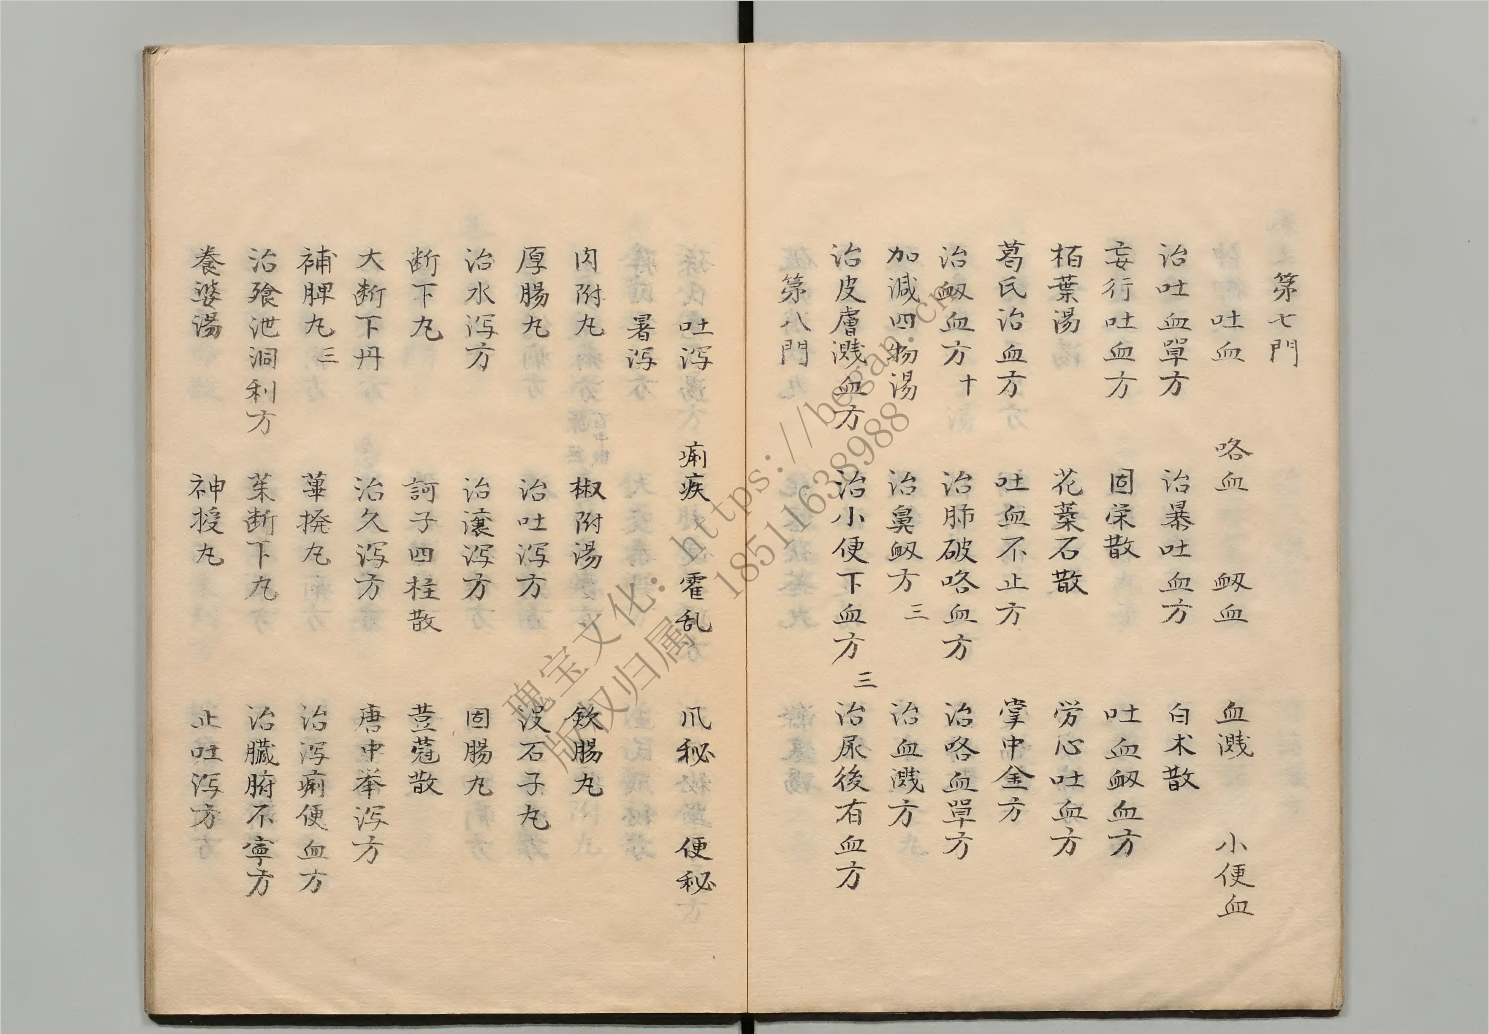 第七門
吐血　咯血　衂血　血濺　小便血
治吐血單方　治暴吐血方　白术散
妄行吐血方　固栄散　吐血衂血方
栢葉湯　花蘂石散　労心吐血方
葛氏治血方　吐血不止方　掌中金方
治衂血方十　治肺破咯血方　治咯血單方
加減四物湯　治鼻衂方三　治血濺方
治皮膚濺血方　治小便下血方三　治尿後有血方
第八門
吐瀉　痢疾　霍乱　風秘　便秘
暑瀉
肉附丸　椒附湯　欽腸丸
厚腸丸　治吐瀉方　没石子丸
治水瀉方　治瀼瀉方　固腸丸
断下丸　訶子四柱散　荳蔲散
大断下丹　治久瀉方　唐中峯瀉方
補脾丸三　蓽撥丸　治瀉痢便血方
治飱泄洞利方　茱断下丸　治臓腑不寧方
養婆湯　神授丸　止吐瀉方
瑰宝文化: https://began.cn
版权归属 18511638988